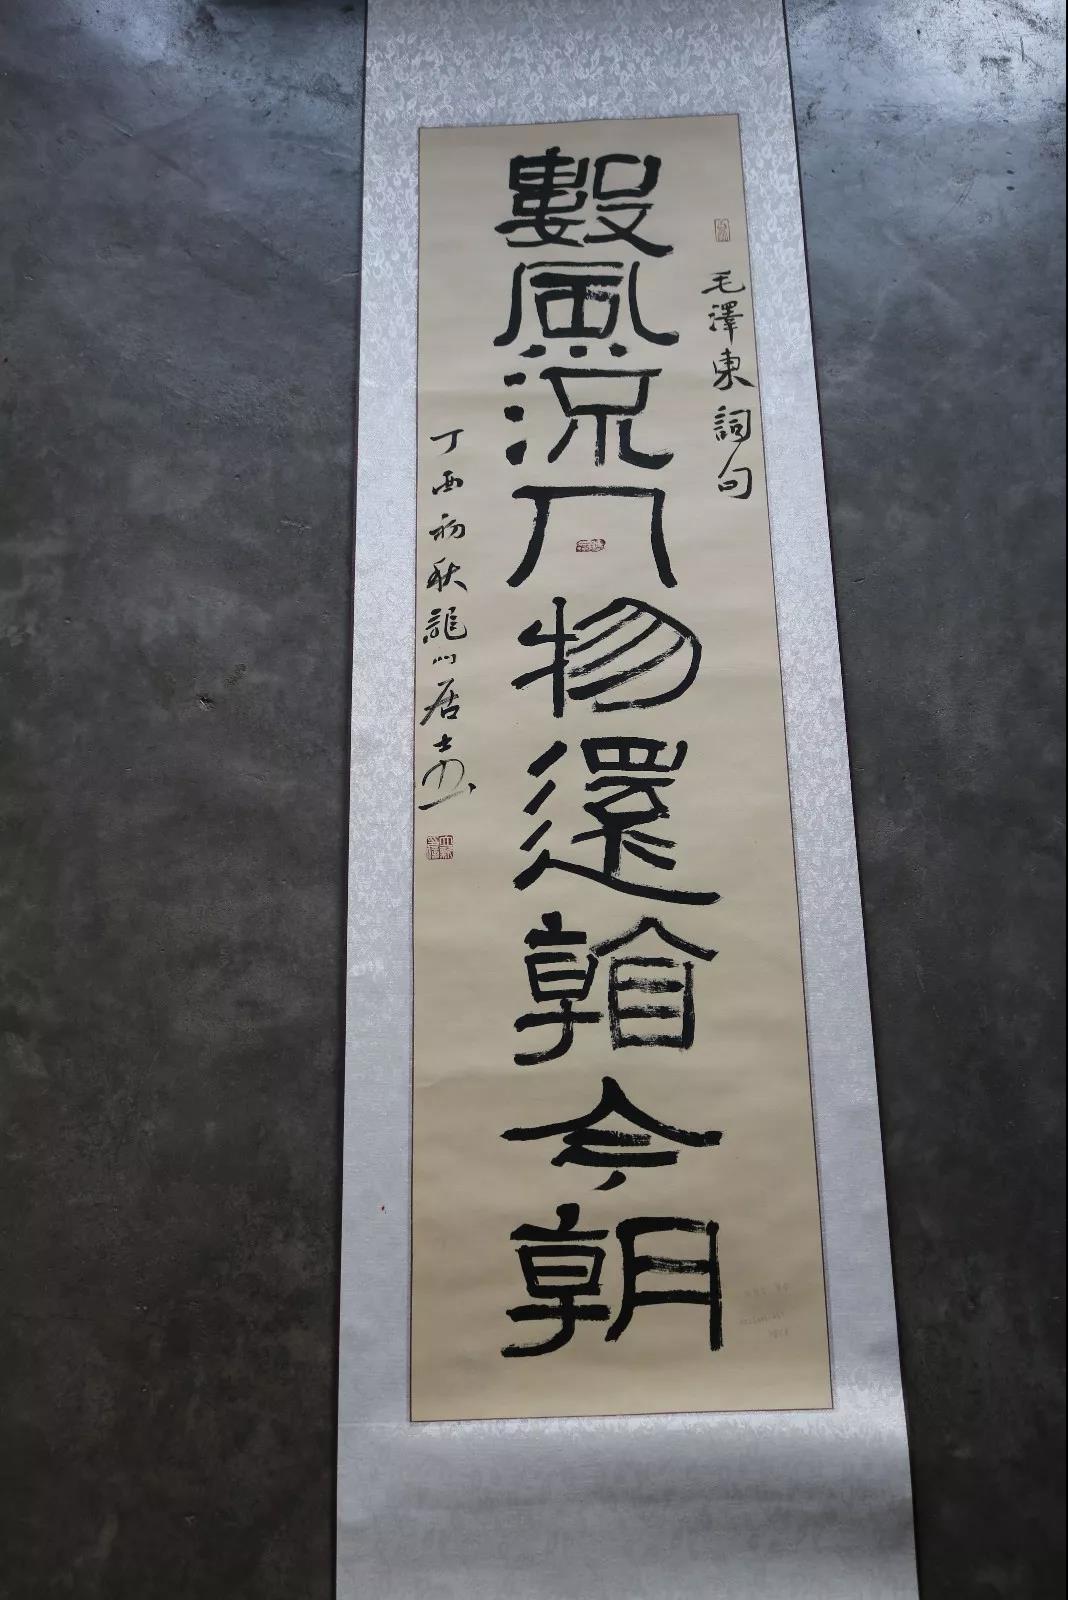 毛澤東詞句
數風流人物還看今朝
丁酉初秋龍川居士